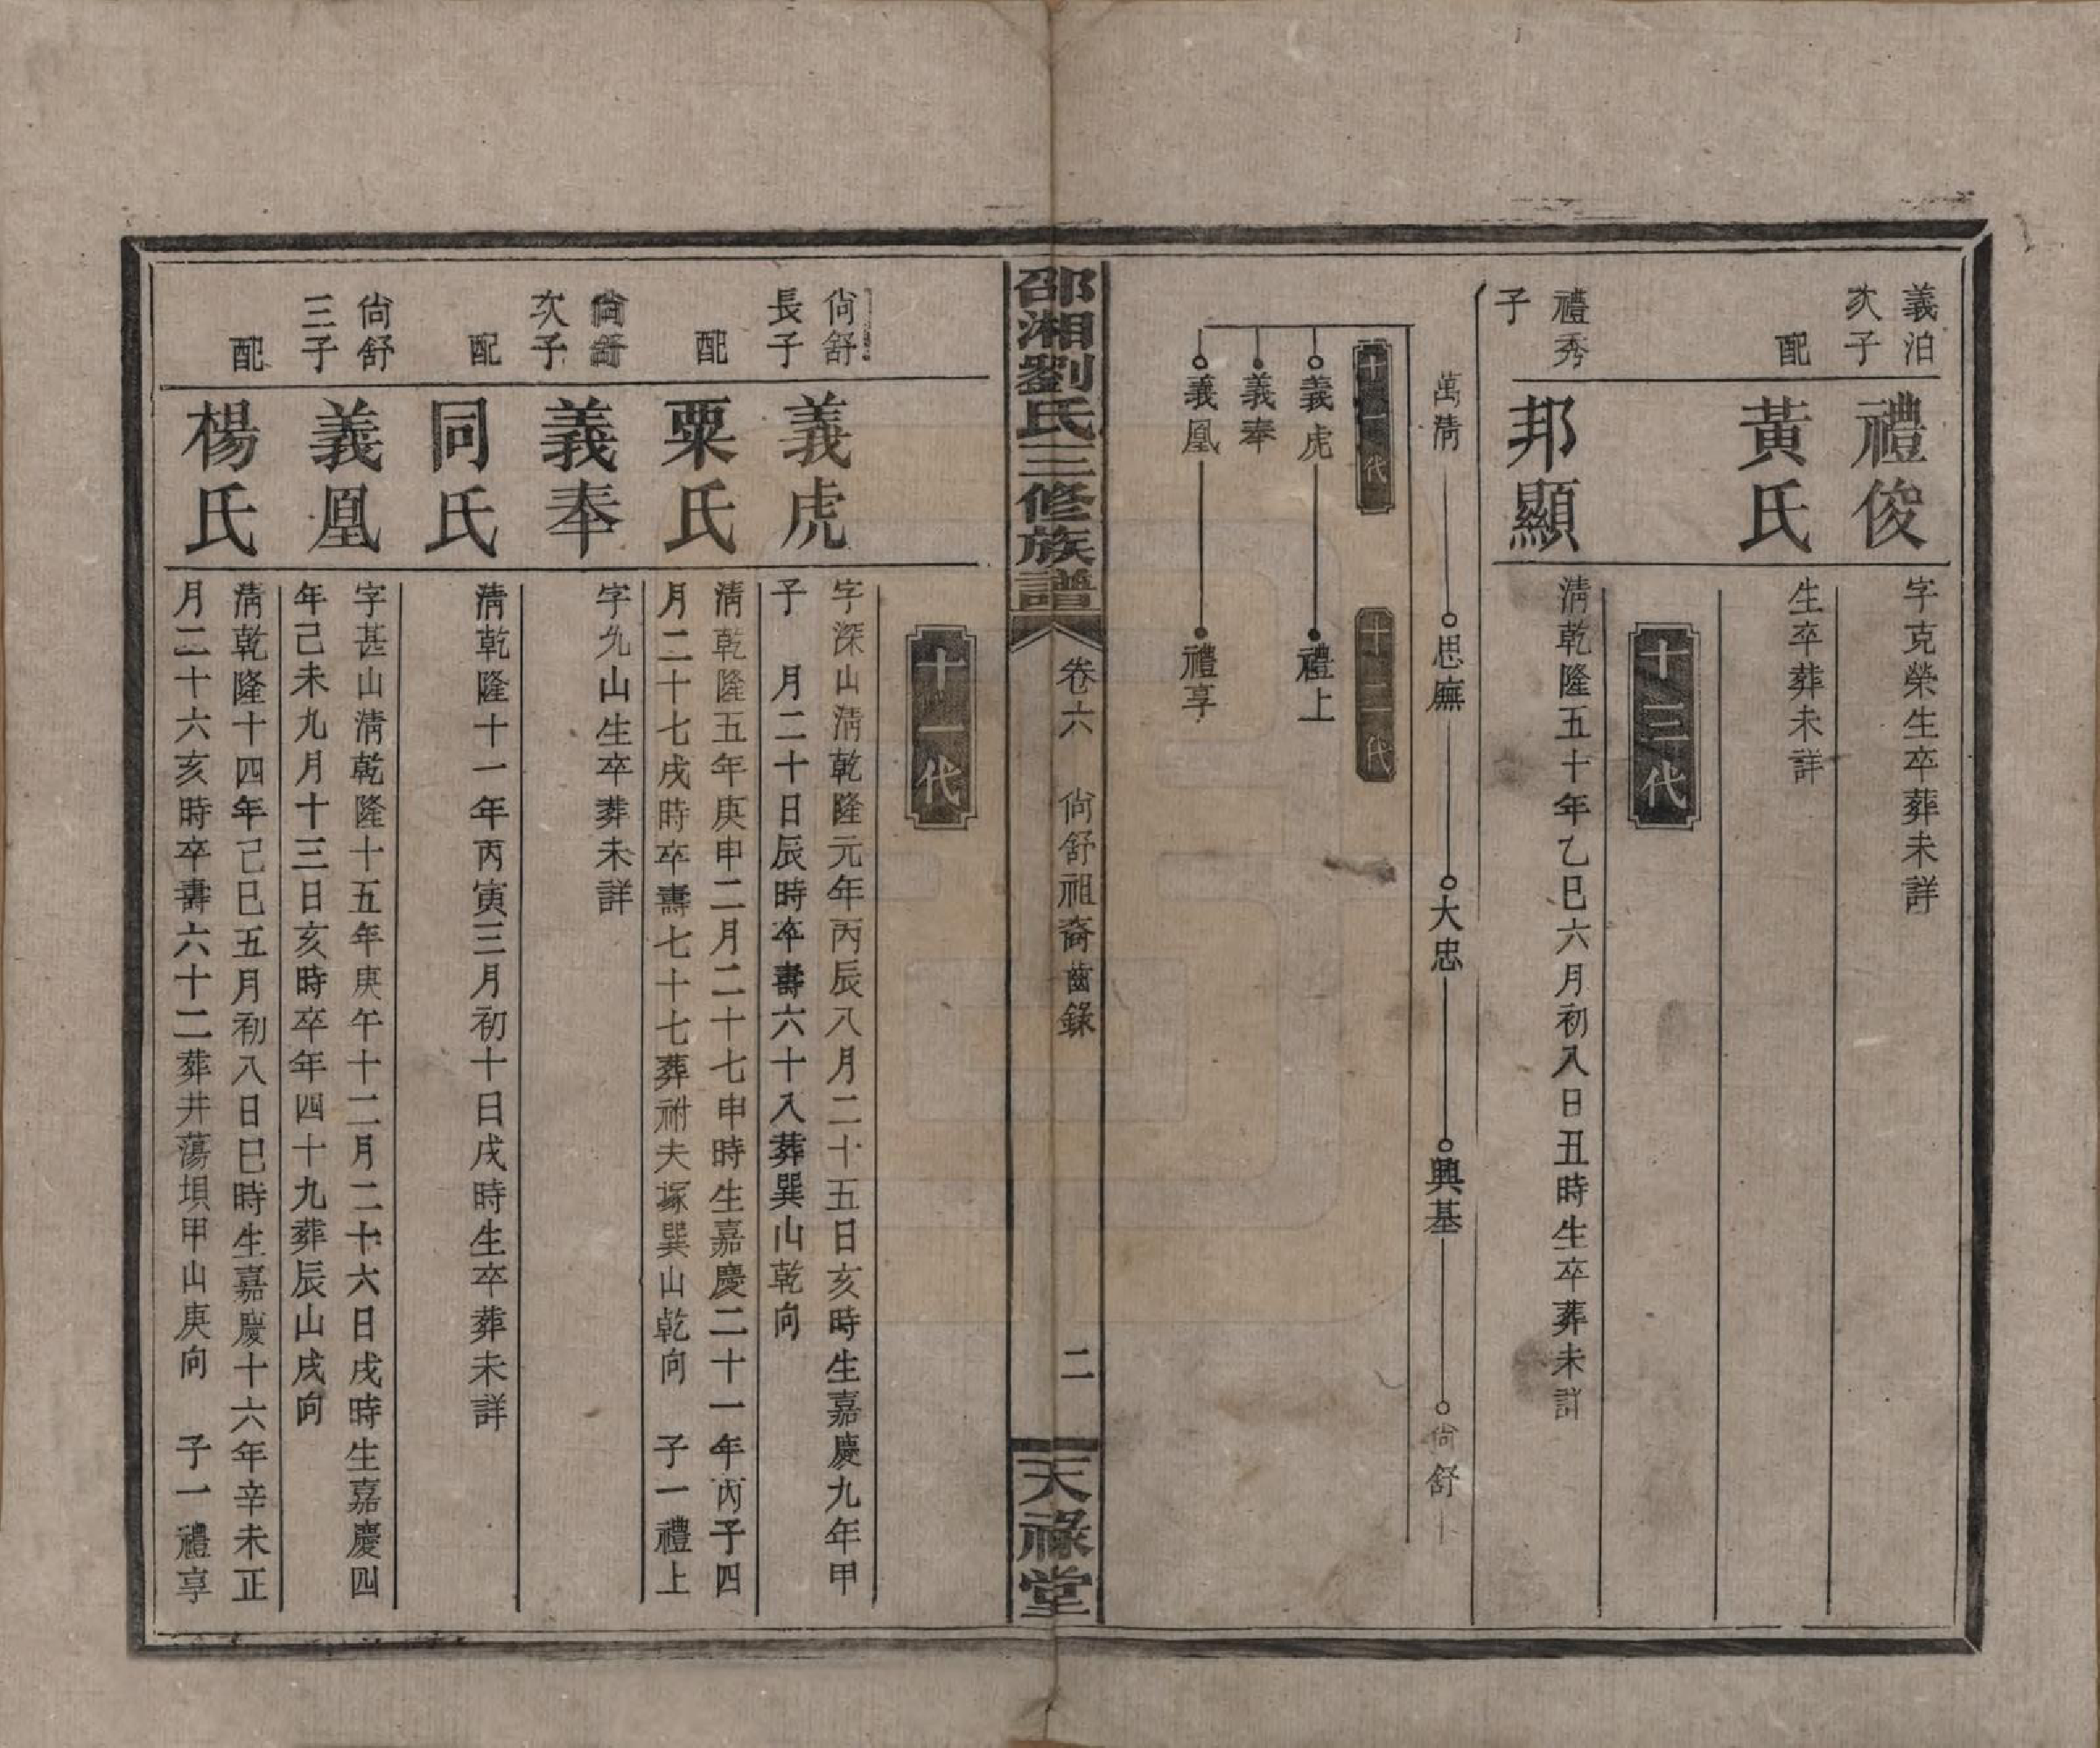 義泊
次子
禮俊
字克榮生卒葬未詳
配
黃氏
生卒葬未詳
十三代
禮秀
子
邦顯
清乾隆五十年乙巳六月初八日丑時生卒葬未詳
萬清
思廡
大忠
興基
尙舒
十一代
十二代
義虎
禮上
義奉
義凰
禮享
邵湘劉氏三修族譜
卷六
尙舒祖裔齒錄
二
天祿堂
十一代
尙舒
長子
義虎
字深山清乾隆元年丙辰八月二十五日亥時生嘉慶九年甲
子 月二十日辰時卒壽六十八葬巽山乾向
配
粟氏
清乾隆五年庚申二月二十七申時生嘉慶二十一年丙子四
月二十七戌時卒壽七十七葬祔夫塚巽山乾向 子一禮上
尙舒
次子
義奉
字九山生卒葬未詳
配
同氏
清乾隆十一年丙寅三月初十日戌時生卒葬未詳
尙舒
三子
義凰
字甚山清乾隆十五年庚午十二月二十六日戌時生嘉慶四
年己未九月十三日亥時卒年四十九葬辰山戌向
配
楊氏
清乾隆十四年己巳五月初八日巳時生嘉慶十六年辛未正
月二十六亥時卒壽六十二葬井蕩垻甲山庚向 子一禮享